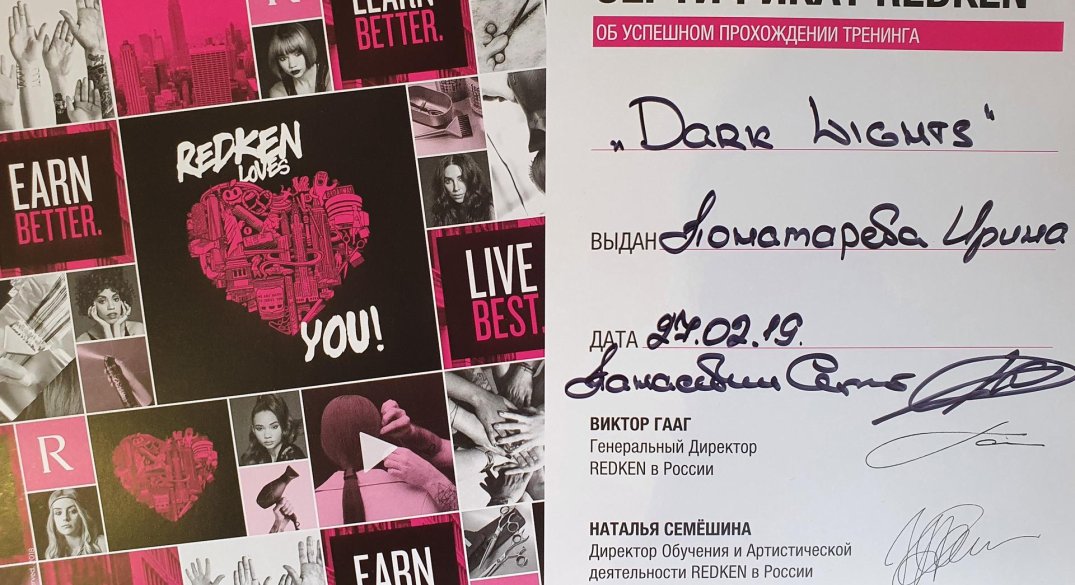 LEARN
BETTER.
R
EARN
BETTER.
REDKEN
LOVES
YOU!
LIVE
BEST.
R
EARN
СЕРТИФИКАТ REDKEN
ОБ УСПЕШНОМ ПРОХОЖДЕНИИ ТРЕНИНГА
„DARK LIGHTS“
ВЫДАН Понатарева Ирина
ДАТА 27.02.19.
ВИКТОР ГААГ
Генеральный Директор
REDKEN в России
НАТАЛЬЯ СЕМЁШИНА
Директор Обучения и Артистической
деятельности REDKEN в России